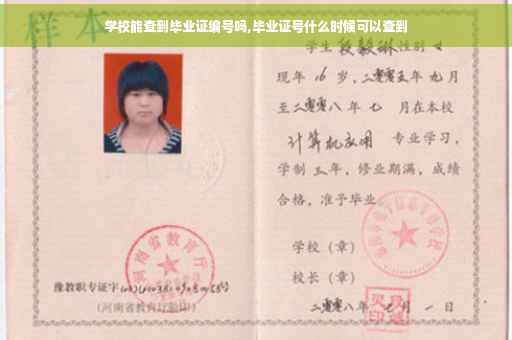 样本
学校能查到毕业证编号吗,毕业证号什么时候可以查到
学生段毅琳性别女
现年16岁,二零零五年九月
至二零零八年七月在本校
计算机应用 专业学习,
学制三年,修业期满,成绩
合格,准予毕业
学校(章)
校长(章)
二零零八年 月一日
河南省教育厅
豫教职专证字
(河南省教育厅验印)